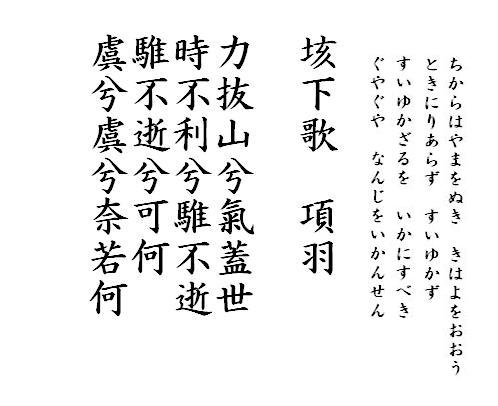 ちからはやまをぬき　きはよをおおう
ときにりあらず　すいゆかず
すいゆかざるを　いかにすべき
ぐやぐや　なんじをいかんせん
垓下歌　項羽
力拔山兮氣蓋世
時不利兮騅不逝
騅不逝兮可何
虞兮虞兮奈若何